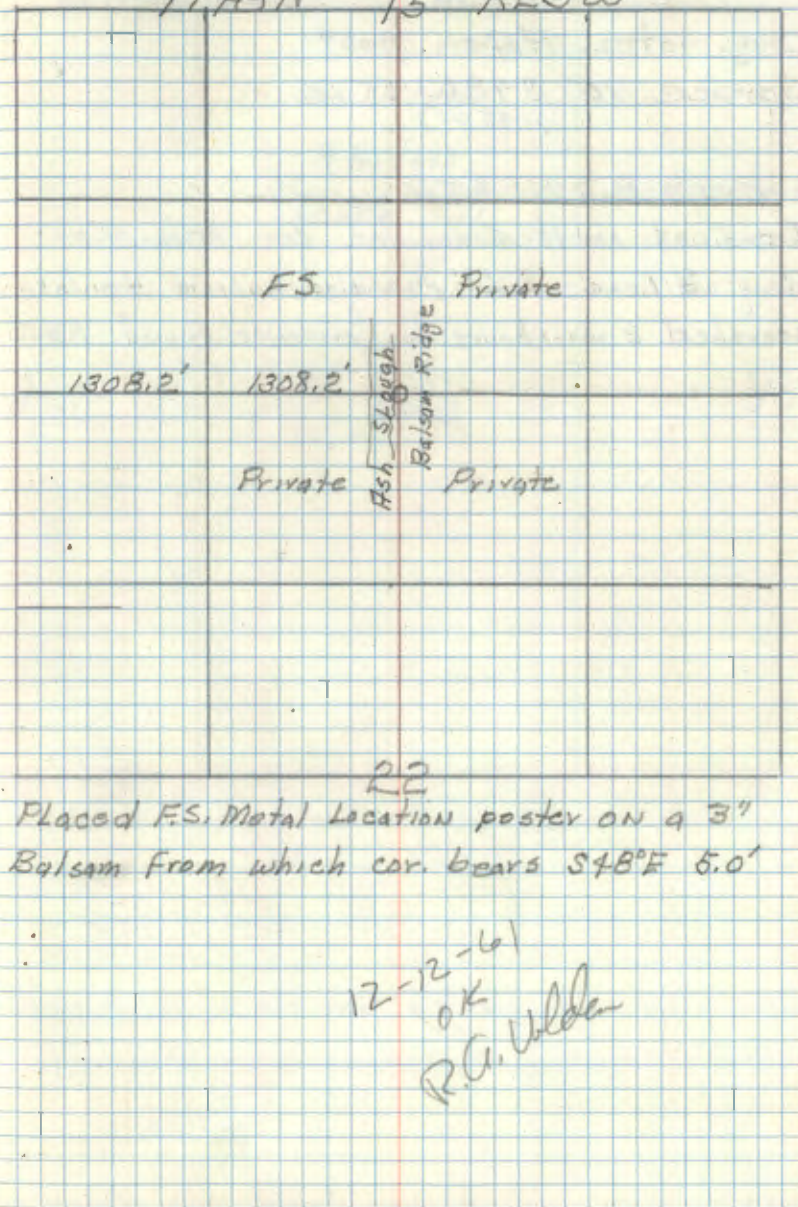 15
FS Private
Ash Slough
Balsam Ridge
1308.2' 1308.2'
Private Private
22
Placed F.S. Metal Location poster on a 3"
Balsam From which cor. bears S48°E 5.0'
12-12-61
OK
R.A.